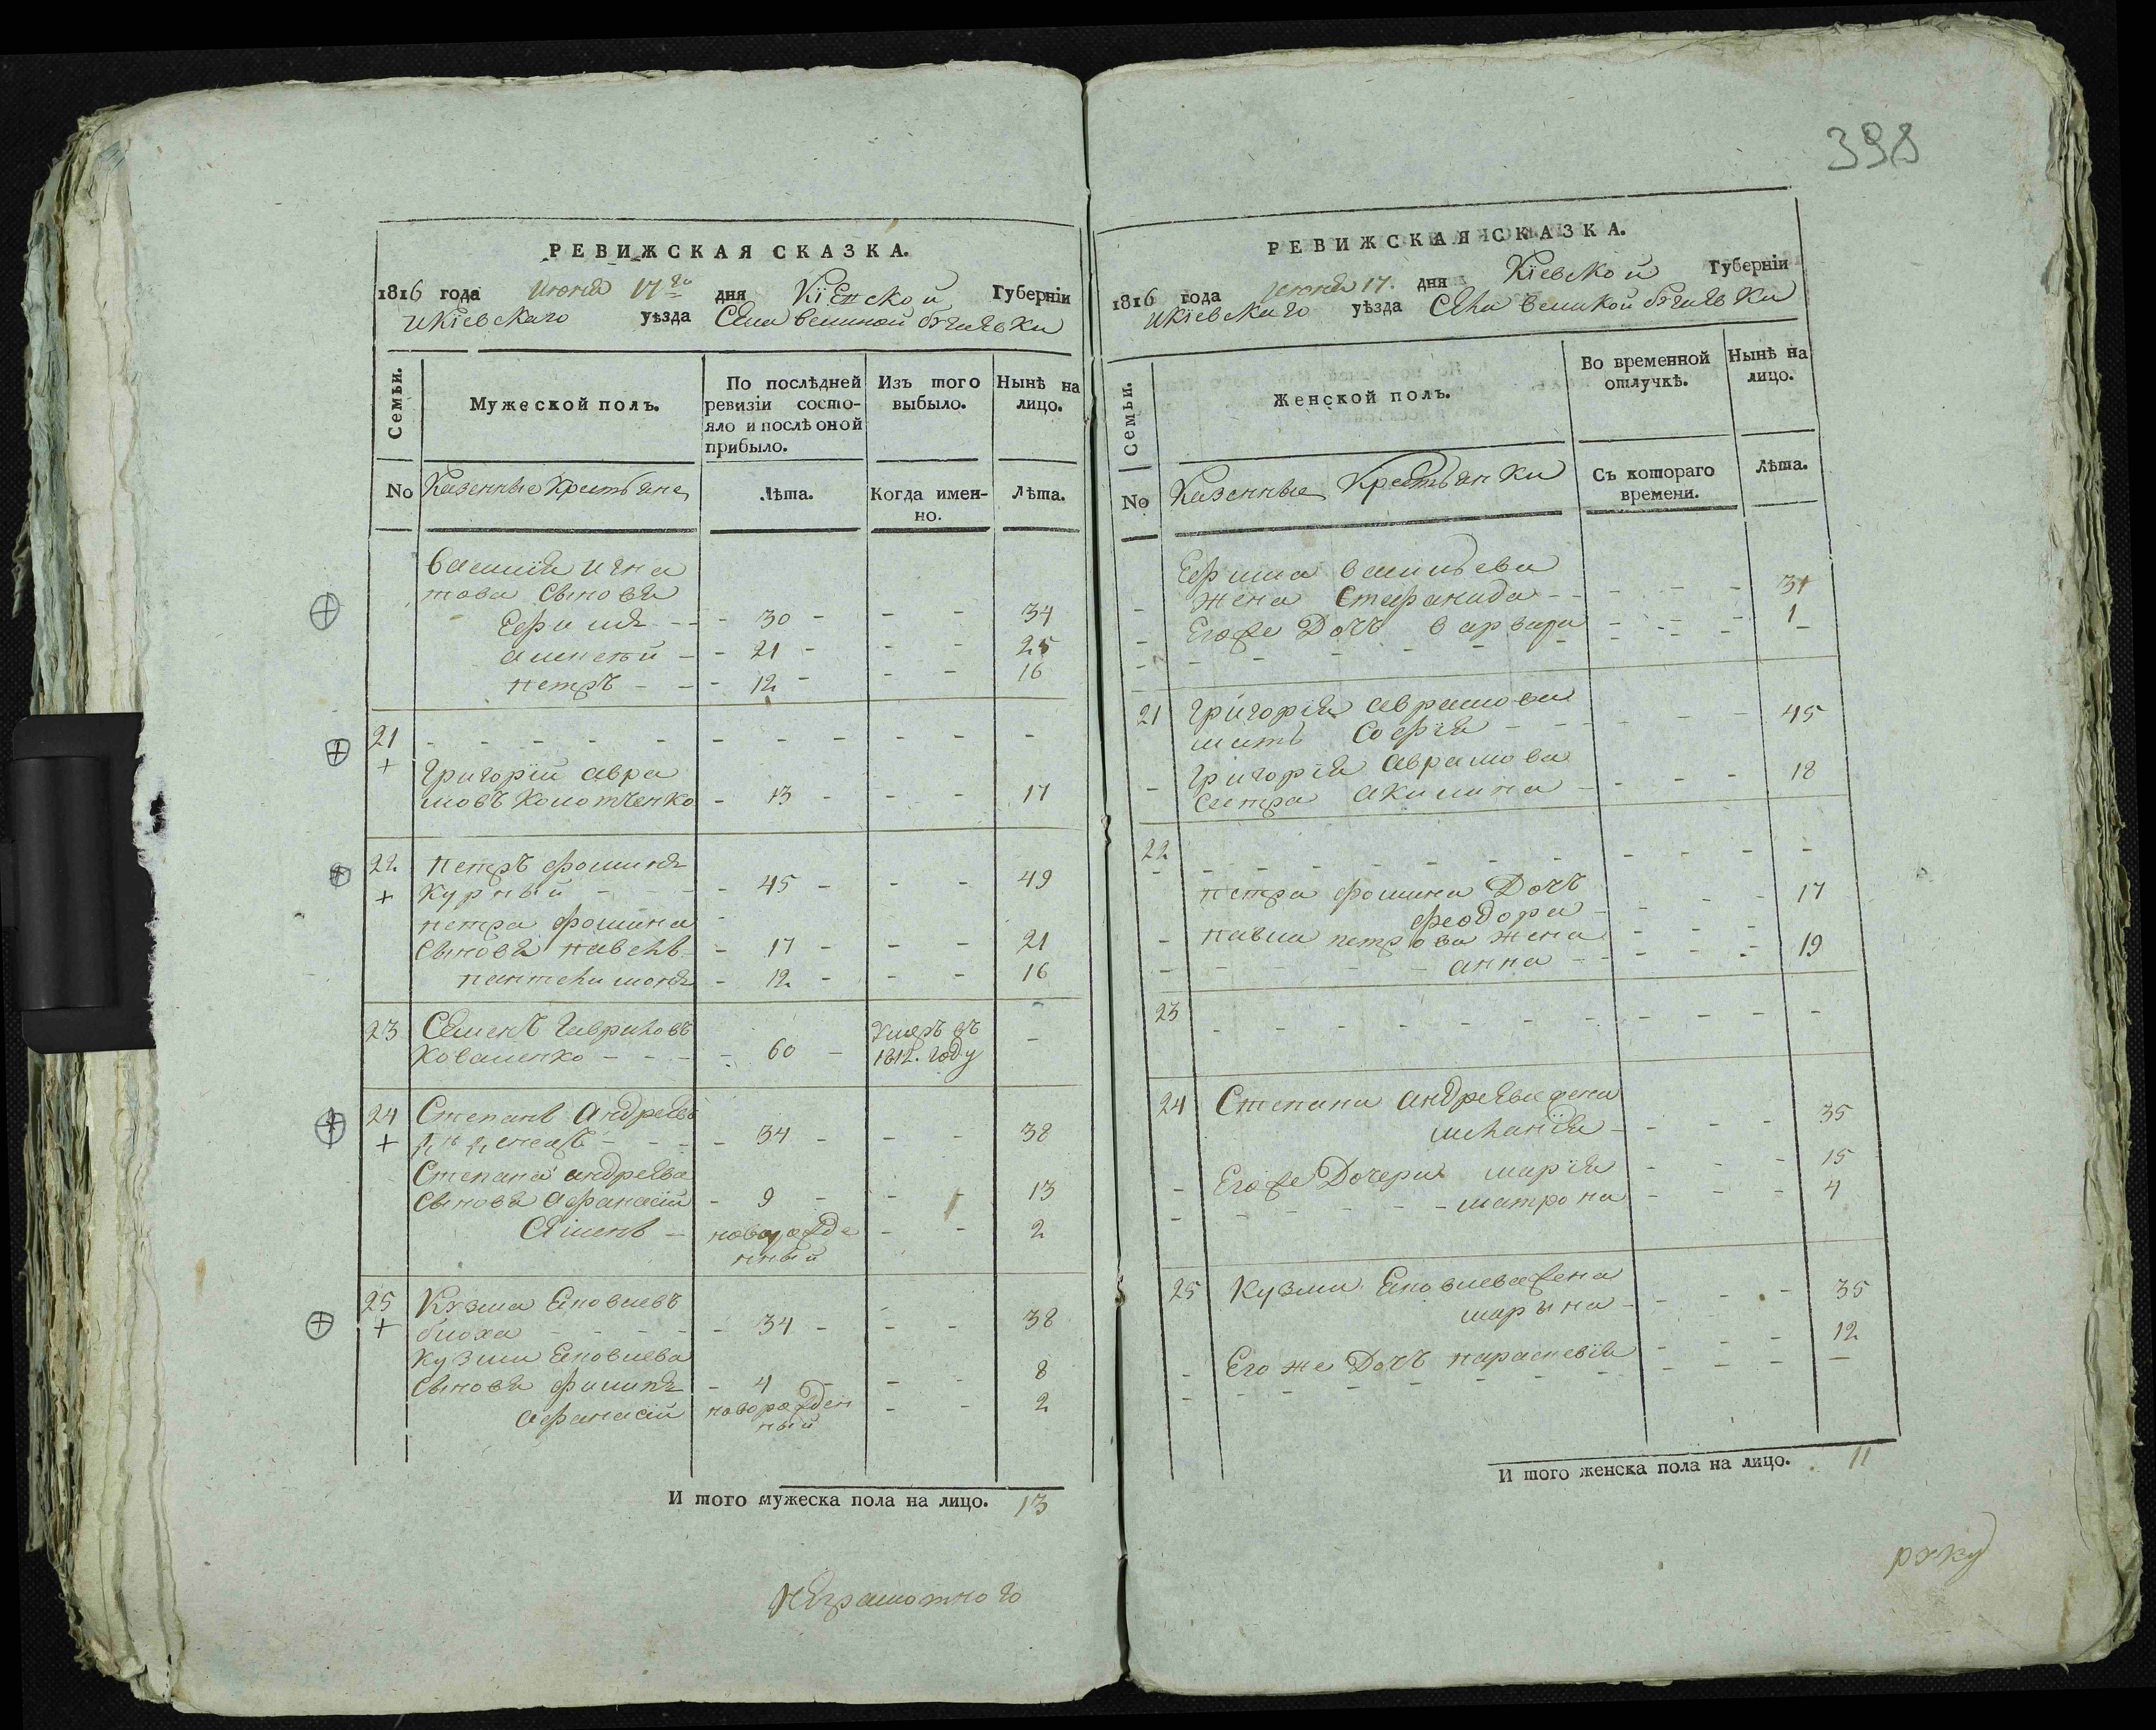 398
РЕВИЖСКАЯ СКАЗКА.
1816 года июня 17го дня Кіевской Губерніи
икіевскаго уѣзда Села великой бугаѣвки
Семьи.
Мужеской полъ.
По послѣдней ревизіи состояло и послѣ оной прибыло.
Изъ того выбыло.
Нынѣ на лицо.
No Казенные Крестьяне
Лѣта.
Когда именно.
Лѣта.
василия игна
това Сыновя
Ефимъ - 30 - - - 34
алексѣй - 21 - - - 25
петръ - 12 - - - 16
21
+ Григорій авра
мовъ - 13 - - - 17
22 петръ фоминъ
+ Курный - 45 - - - 49
петра фомина
Сыновя павелъ - 17 - - - 21
пантелимонъ - 12 - - - 16
23 Семенъ Гавриловъ Умеръ въ
Коваленко - 60 - 1812. году -
24 Степанъ андреевъ
+ - 34 - - - 38
Степана андреева
Сыновя афанасій - 9 - - - 13
Семенъ - новорожде - - 2
нный
25 Кузма
+ блоха - 34 - - - 38
Кузми
Сыновя филипъ - 4 - - - 8
афанасій новорожден - - 2
ный
И того мужеска пола на лицо. 13
неграмотного
РЕВИЖСКАЯ СКАЗКА.
1816 года июня 17. дня Кіевской Губерніи
икіевскаго уѣзда Села великой бугаѣвки
Семьи.
Женской полъ.
Во временной отлучкѣ.
Нынѣ на лицо.
No Казенные Крестьянки
Съ котораго времени.
Лѣта.
Ефима васильева
жена Стефанида - - - 31
Егоже Дочъ варвара - - - 1
21 Григорія аврамова
мать Софія - - - 45
Григорія аврамова
Сестра акилина - - - 18
22
петра фомина Дочъ
феодора - - - 17
павла петрова жена
анна - - - 19
23
24 Степана андреева жена
меланія - - - 35
Егоже Дочери марія - - - 15
матрона - - - 4
25 Кузми жена
марына - - - 35
Его же Дочъ параскевія - - - 12
И того женска пола на лицо. 11
руку